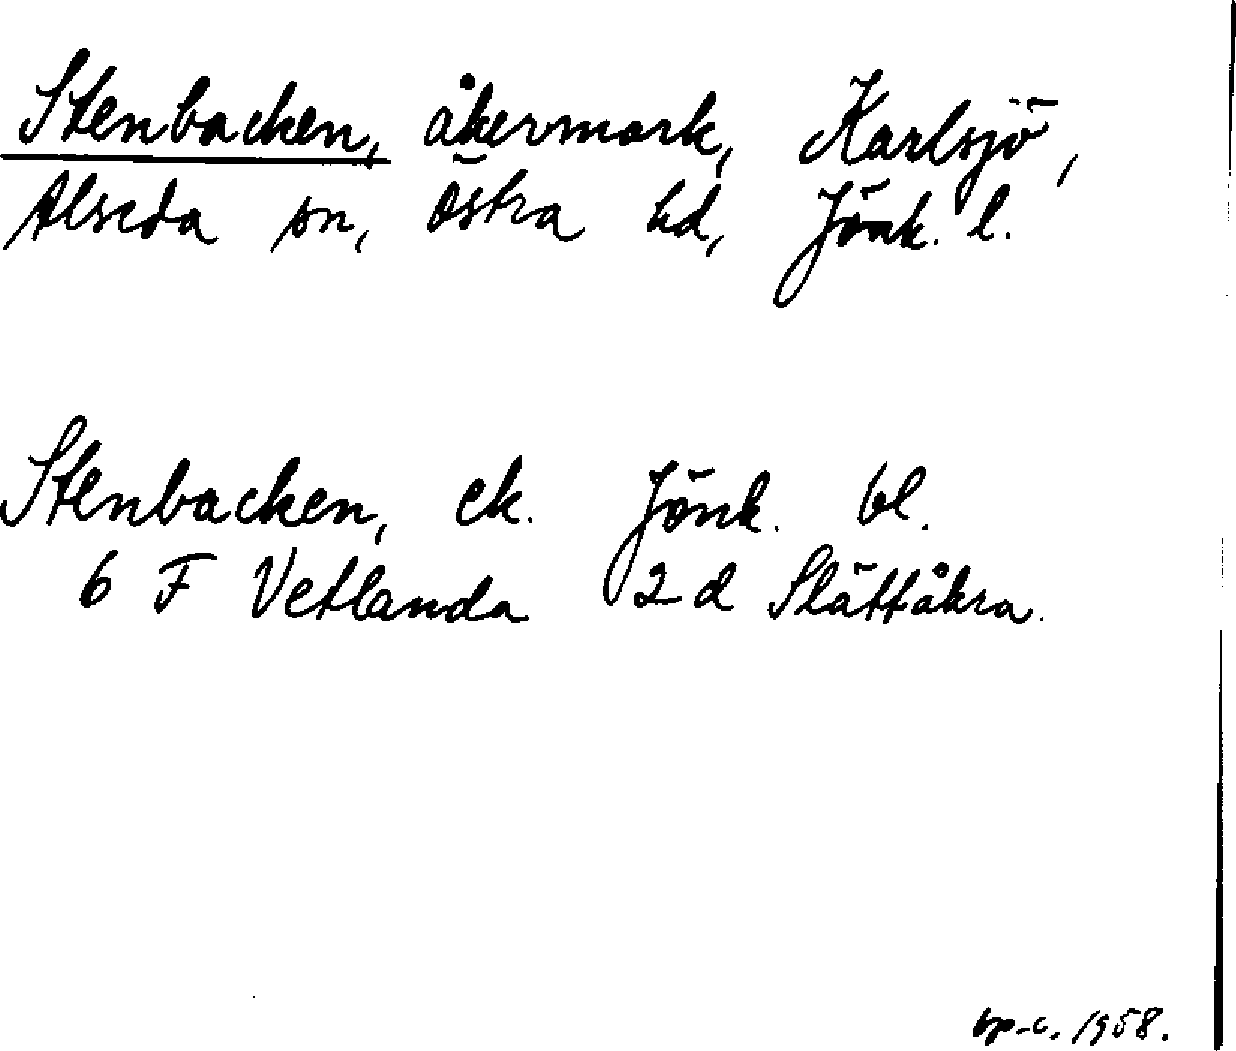 Stenbacken, åkermark, Karlsjö,
Alseda sn, Östra hd, Jönk. l.
Stenbacken, ek. Jönk. bl.
6 F Vetlanda 2 d Slättåkra.
1958.